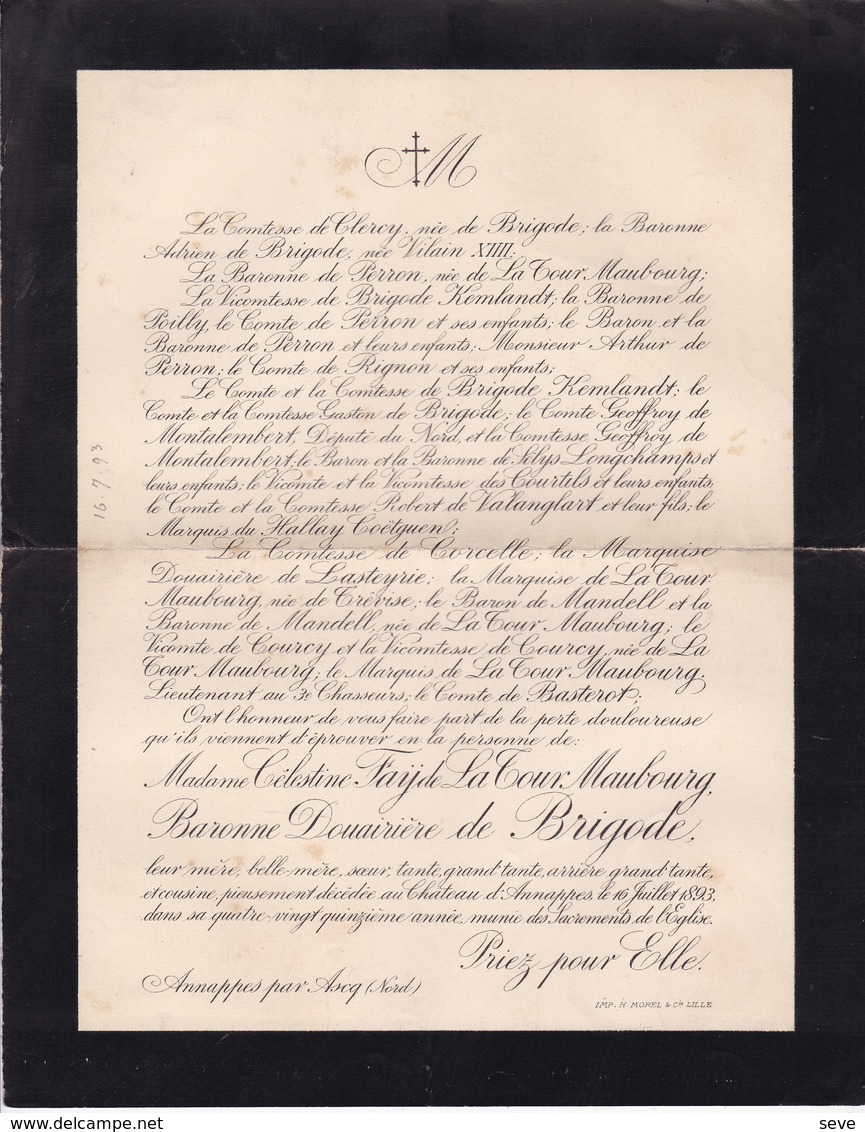 M
La Comtesse de Clercy, née de Brigode; la Baronne
Adrien de Brigode, née Vilain XIIII;
La Baronne de Perron, née de La Tour Maubourg;
La Vicomtesse de Brigode Kemlandt; la Baronne de
Poilly, le Comte de Perron et ses enfants; le Baron et la
Baronne de Perron et leurs enfants; Monsieur Arthur de
Perron; le Comte de Rignon et ses enfants;
Le Comte et la Comtesse de Brigode Kemlandt; le
Comte et la Comtesse Gaston de Brigode; le Comte Geoffroy de
Montalembert, Député du Nord, et la Comtesse Geoffroy de
Montalembert; le Baron et la Baronne de Sélys Longchamps et
leurs enfants; le Vicomte et la Vicomtesse des Courtils et leurs enfants;
le Comte et la Comtesse Robert de Valanglart et leur fils; le
Marquis du Hallay Coëtquen;
La Comtesse de Corcelle; la Marquise
Douairière de Lasteyrie; la Marquise de La Tour
Maubourg, née de Trévise; le Baron de Mandell et la
Baronne de Mandell, née de La Tour Maubourg; le
Vicomte de Courcy et la Vicomtesse de Courcy, née de La
Tour Maubourg; le Marquis de La Tour Maubourg,
Lieutenant au 3e Chasseurs; le Comte de Basterot;
Ont l'honneur de vous faire part de la perte douloureuse
qu'ils viennent d'éprouver en la personne de:
Madame Célestine Faÿ de La Tour Maubourg,
Baronne Douairière de Brigode,
leur mère, belle-mère, sœur, tante, grand'tante, arrière grand'tante,
et cousine, pieusement décédée au Château d'Annappes, le 16 Juillet 1893,
dans sa quatre-vingt quinzième année, munie des Sacrements de l'Eglise.
Priez pour Elle.
Annappes par Ascq (Nord)
IMP. H. MOREL & Cie LILLE
16.7.93
delcampe.net
seve